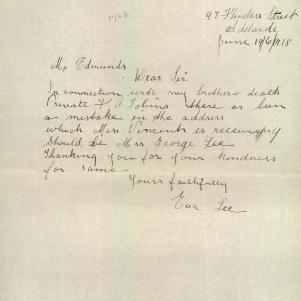 97 Flinders Street
Adelaide
June 19/6/1918
Mr Edmunds
Dear Sir
In connection with my brothers death
Private F Tobins there as been
a mistake in the address
which Miss Vincents is receiving
should be Mrs George Lee
Thanking you for your kindness
for same
Yours faithfully
Eva Lee